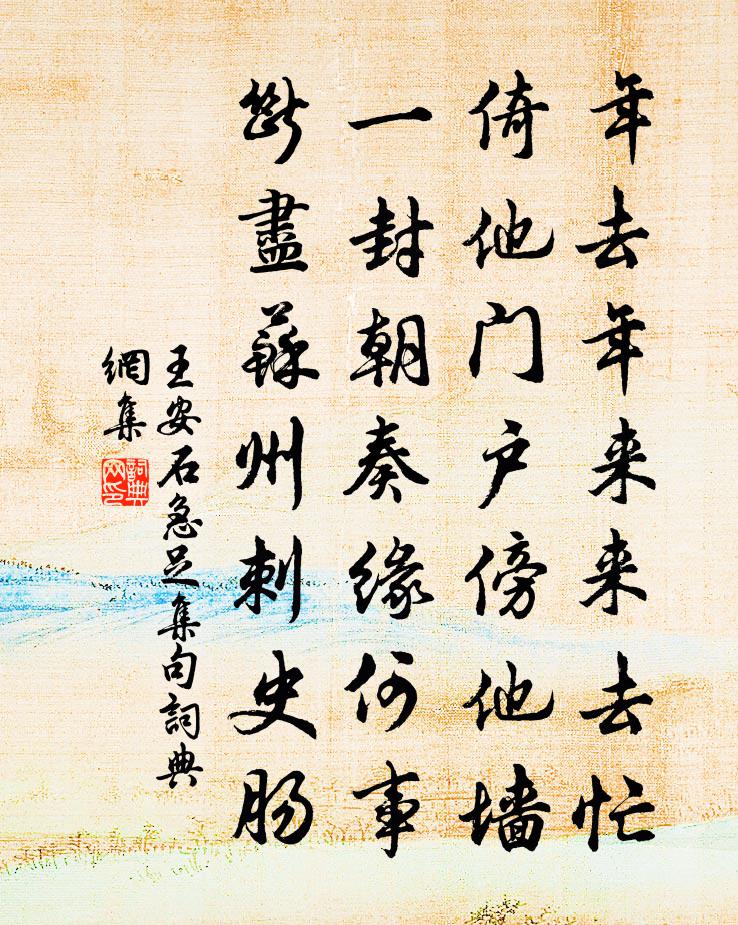 年去年来来去忙
倚他门户傍他墙
一封朝奏缘何事
斷盡蘇州刺史肠
王安石急足集句詞典
網集
詞典
网印